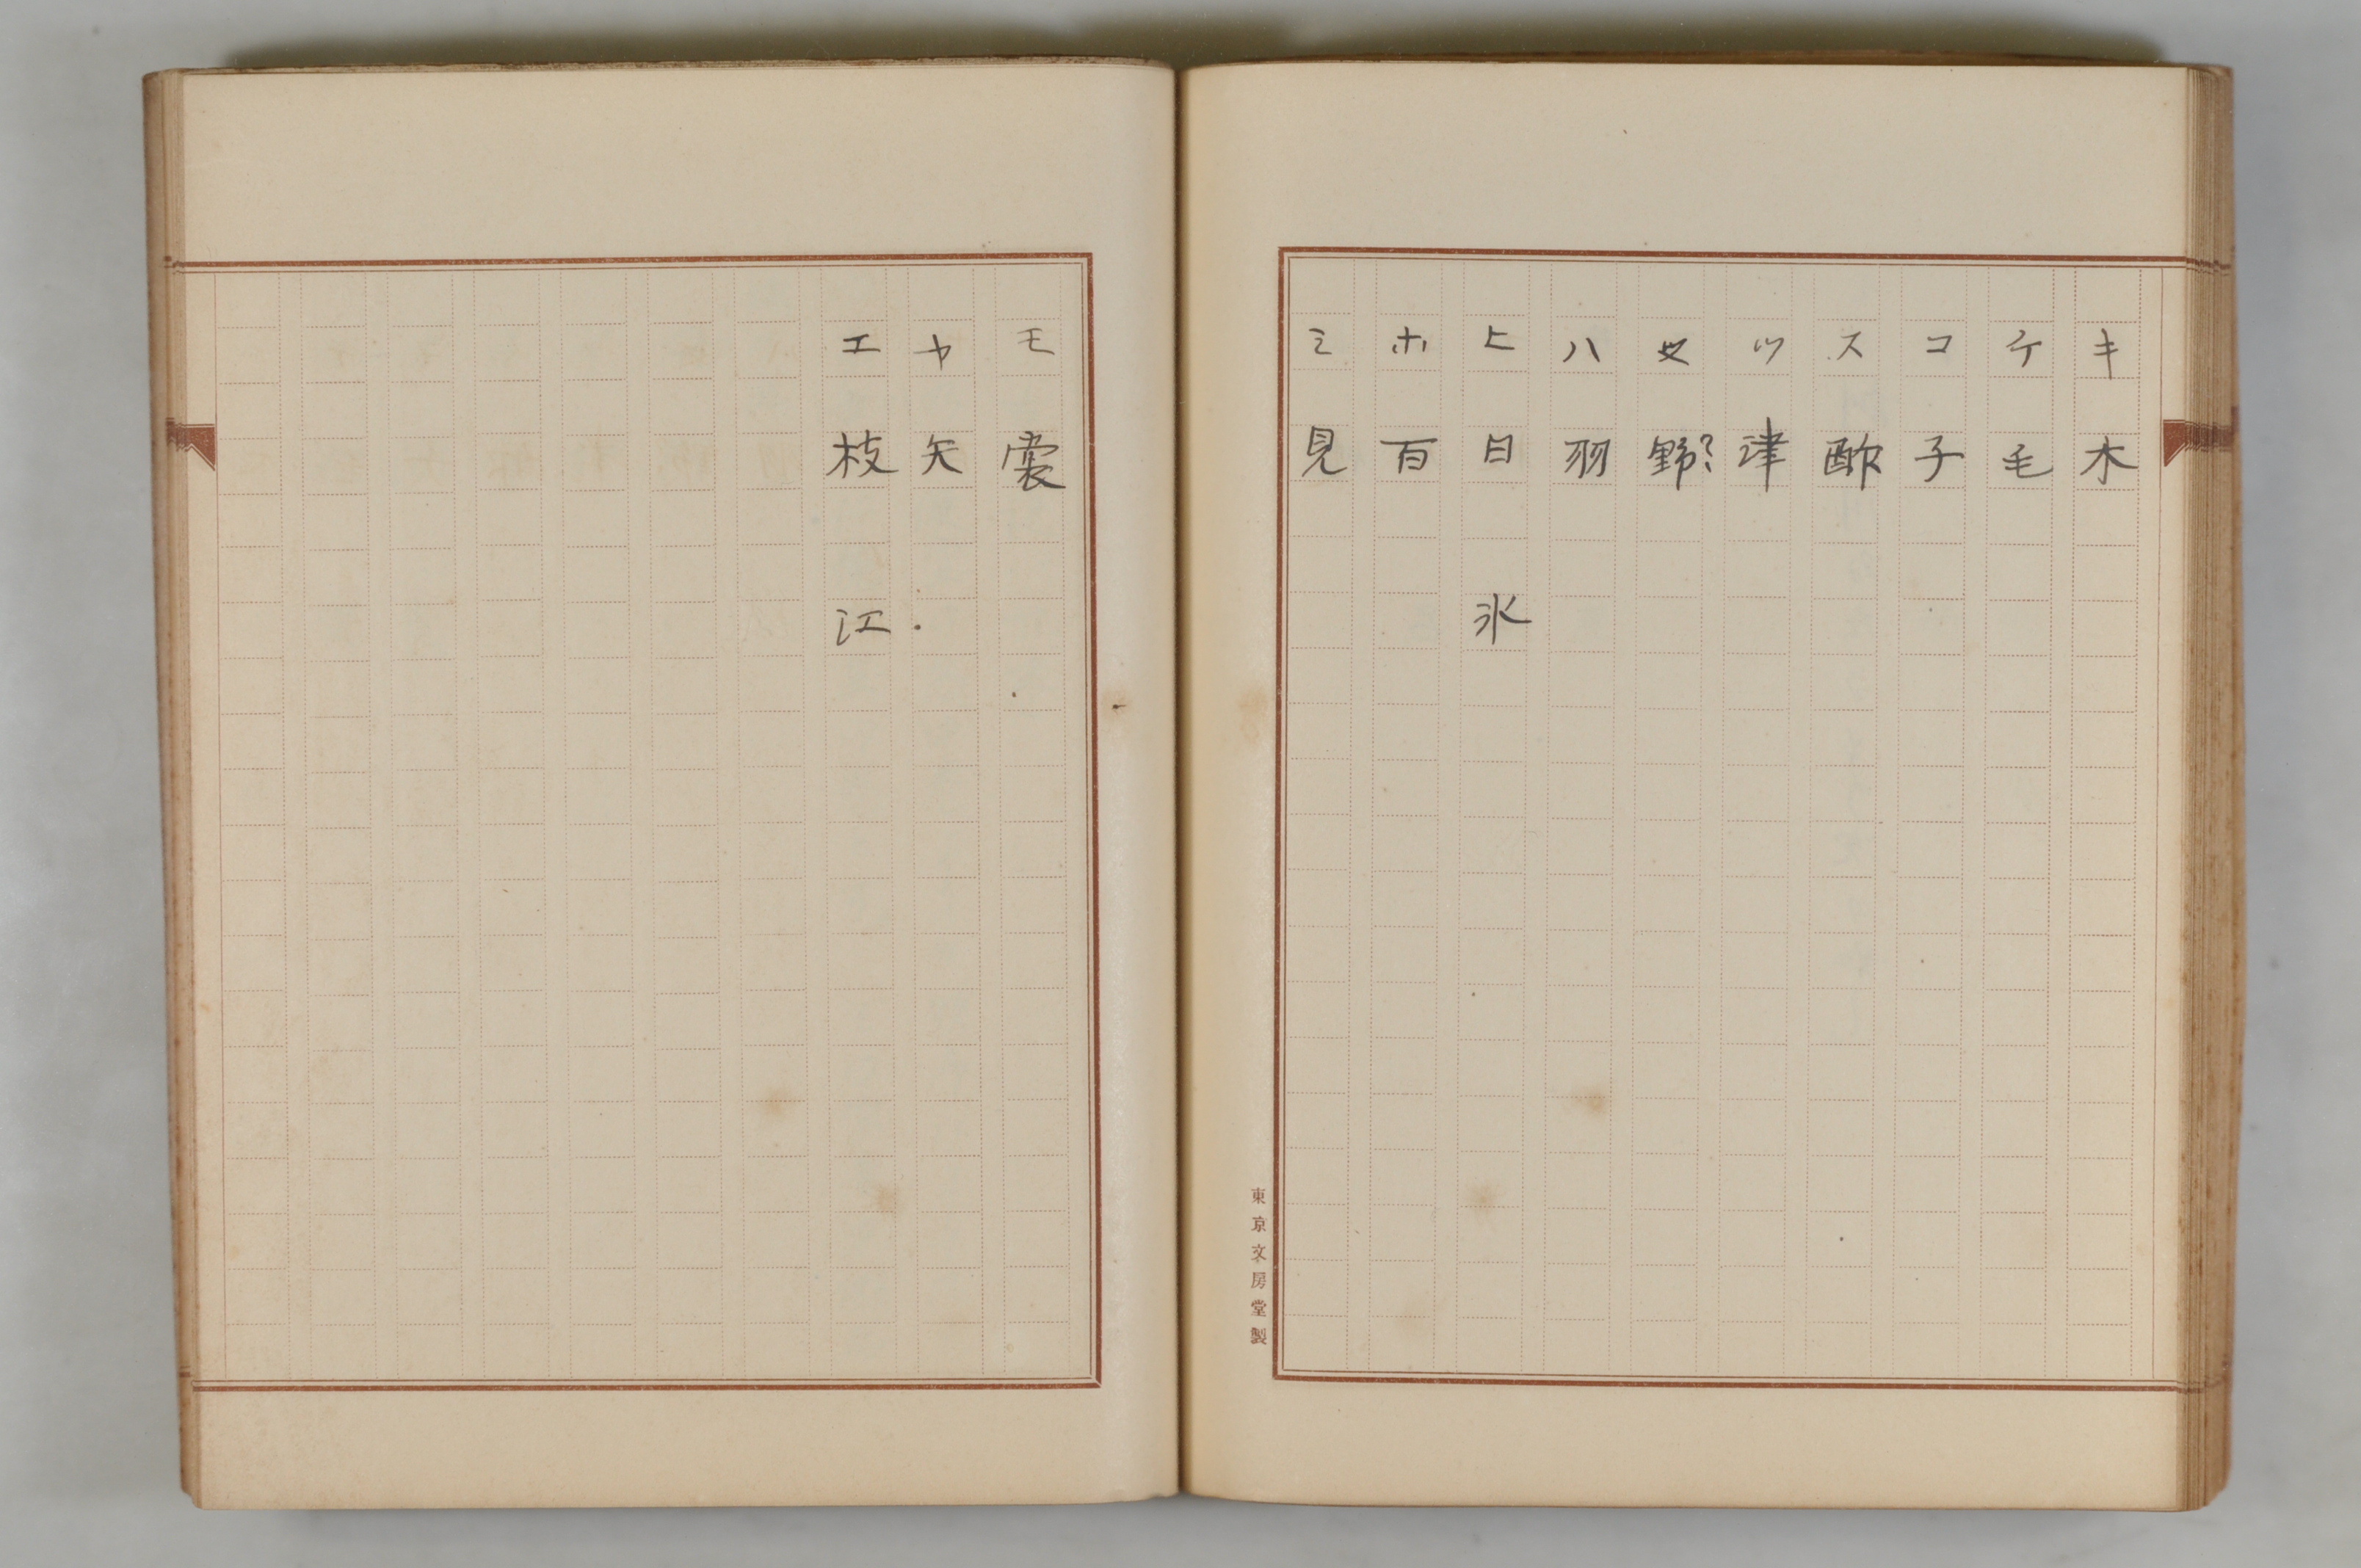 キ 木
ケ 毛
コ 子
ス 酢
ツ 津
野?
ハ 羽
ヒ 日 氷
ホ 百
ミ 見
東京文房堂製
モ 裳
ヤ 矢
エ 枝 江